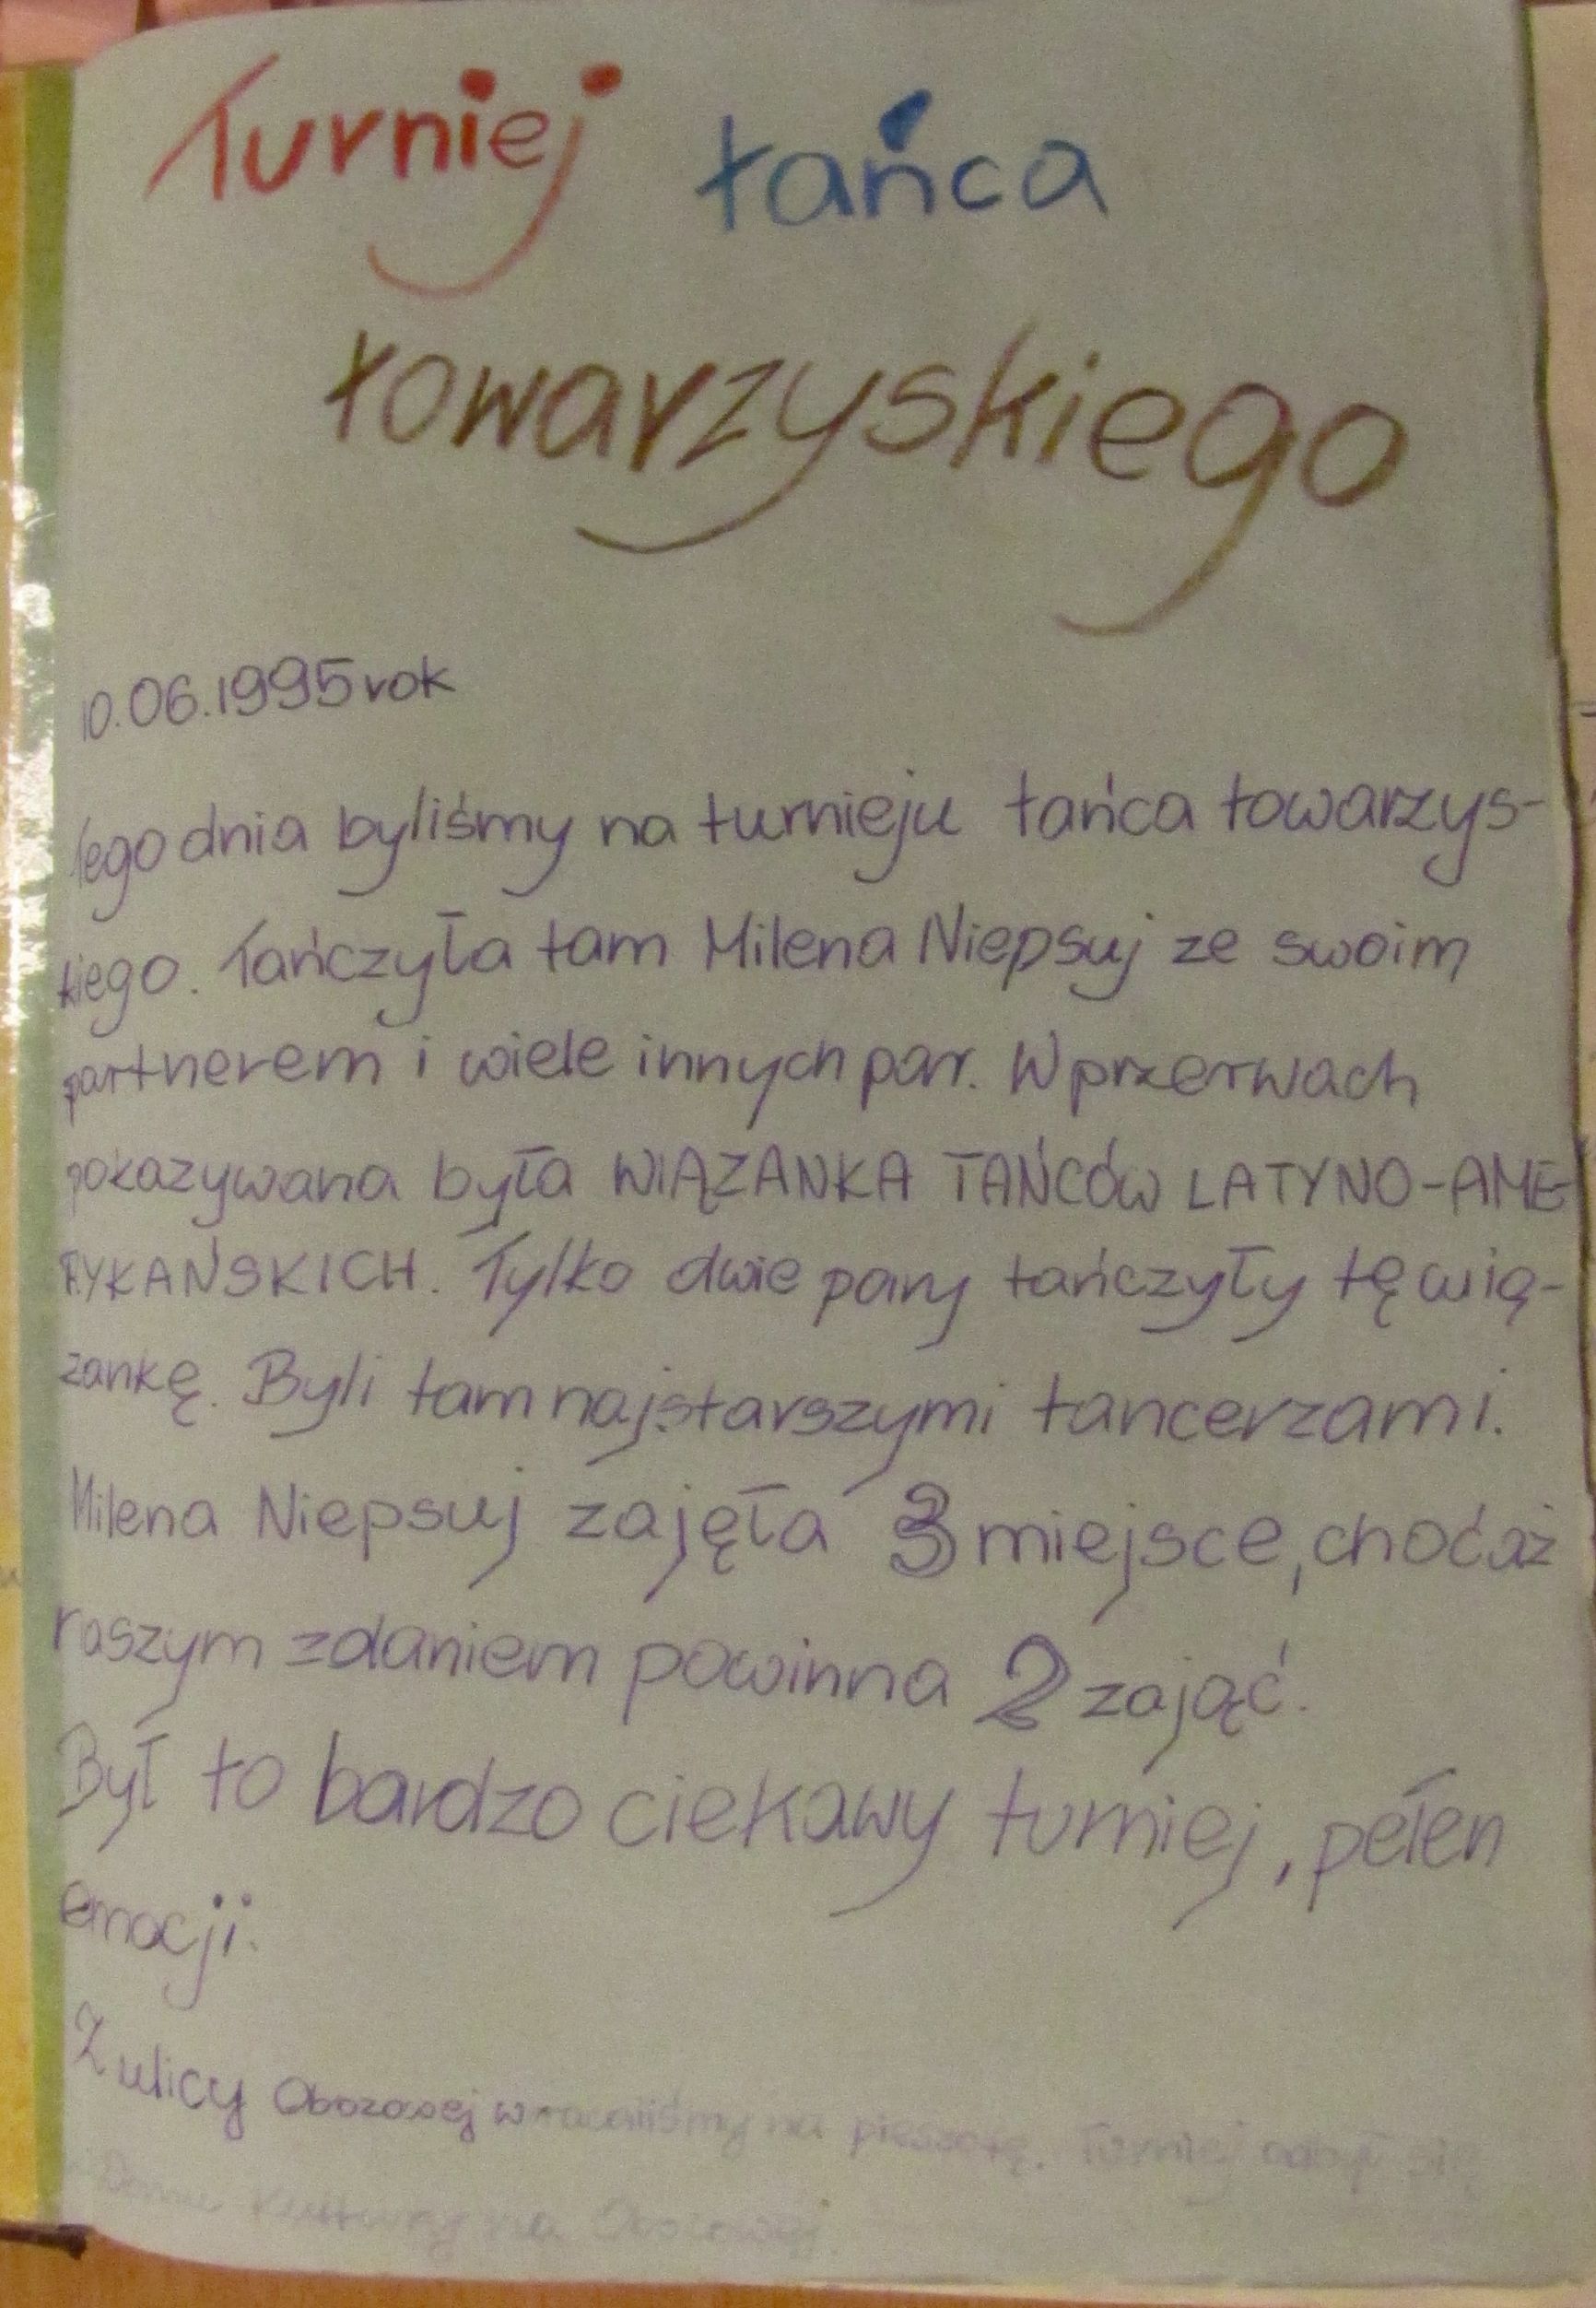 Turniej tańca
towarzyskiego
10.06.1995 rok
Tego dnia byliśmy na turnieju tańca towarzys-
kiego. Tańczyła tam Milena Niepsuj ze swoim
partnerem i wiele innych par. W przerwach
pokazywana była WIĄZANKA TAŃCÓW LATYNO-AME-
RYKAŃSKICH. Tylko dwie pary tańczyły tę wią-
zankę. Byli tam najstarszymi tancerzami.
Milena Niepsuj zajęła 3 miejsce, choćaż
naszym zdaniem powinna 2 zająć.
Był to bardzo ciekawy turniej, pełen
emocji.
Z ulicy Obozowej wracaliśmy na pieszotę. Turniej odbył się
w Domu Kultury na Obozowej.